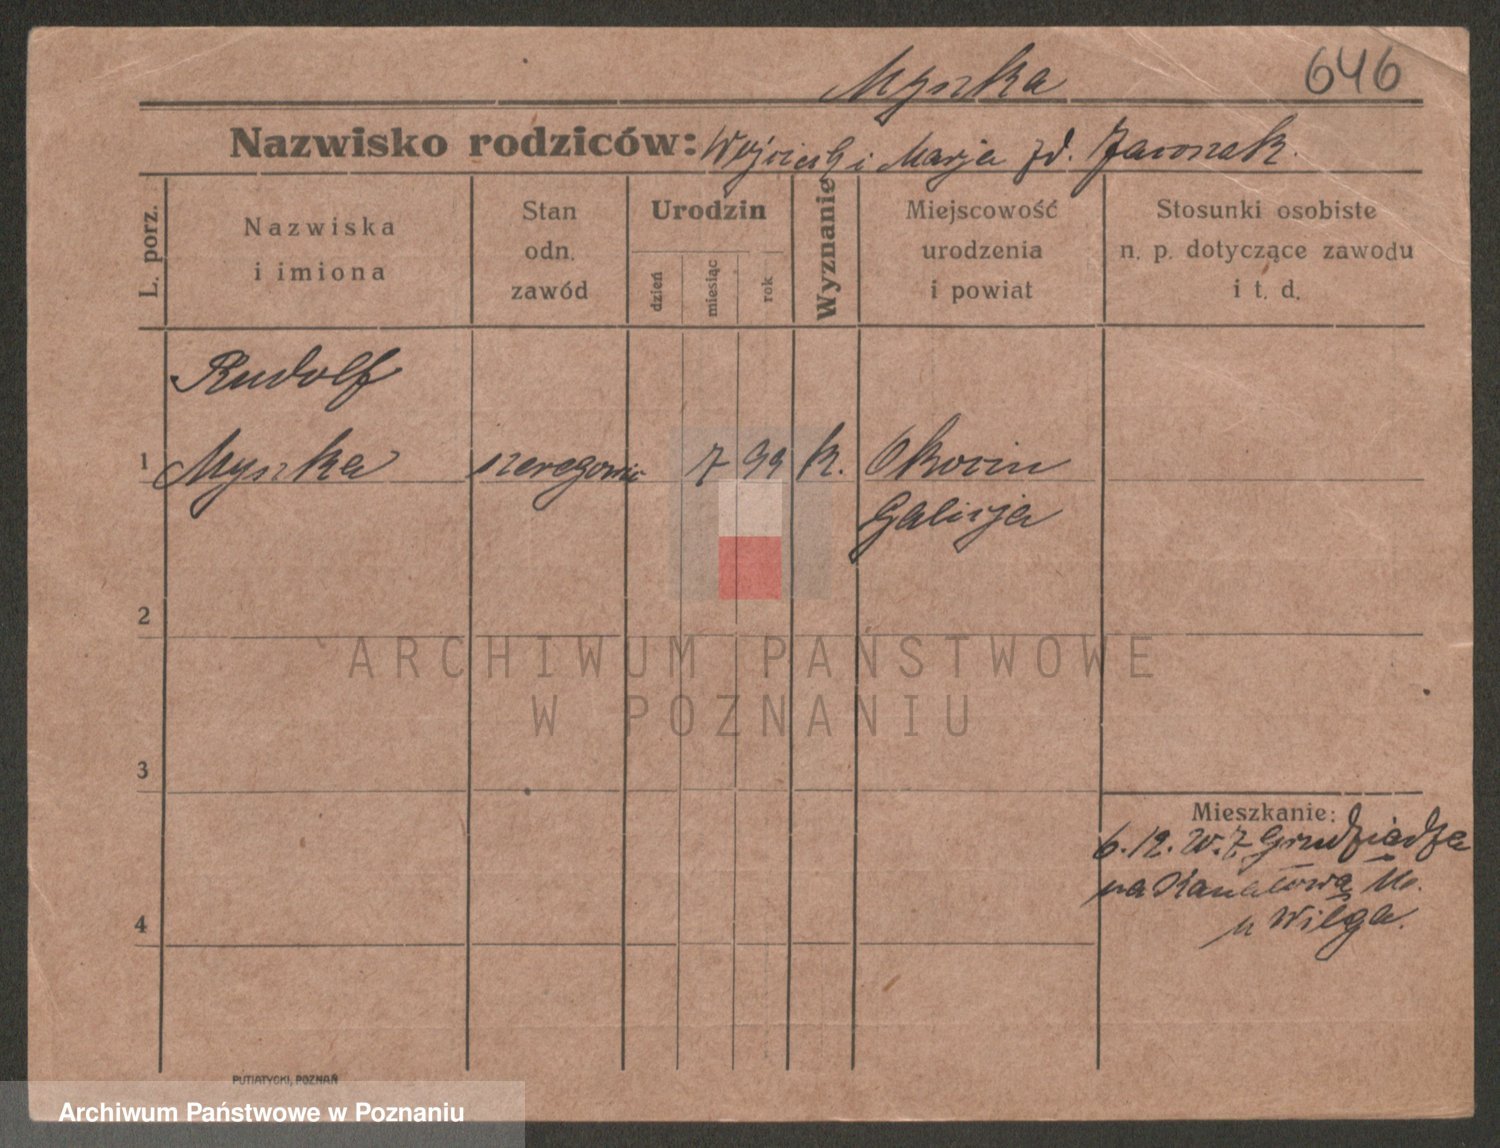 Myszka 646
Nazwisko rodziców: Wojciech i Marja zd. Jaronek.
L. porz.
Nazwiska
i imiona
Stan
odn.
zawód
Urodzin
dzień
miesiąc
rok
Wyznanie
Miejscowość
urodzenia
i powiat
Stosunki osobiste
n. p. dotyczące zawodu
i t. d.
Rudolf
1 Myszka szeregowiec 7 99 k. Okocim
Galicja
2
ARCHIWUM PAŃSTWOWE
W POZNANIU
3
Mieszkanie:
6.12. z Grudziądza
na Kanałową
u Wilga.
4
PUTIATYCKI, POZNAŃ
Archiwum Państwowe w Poznaniu